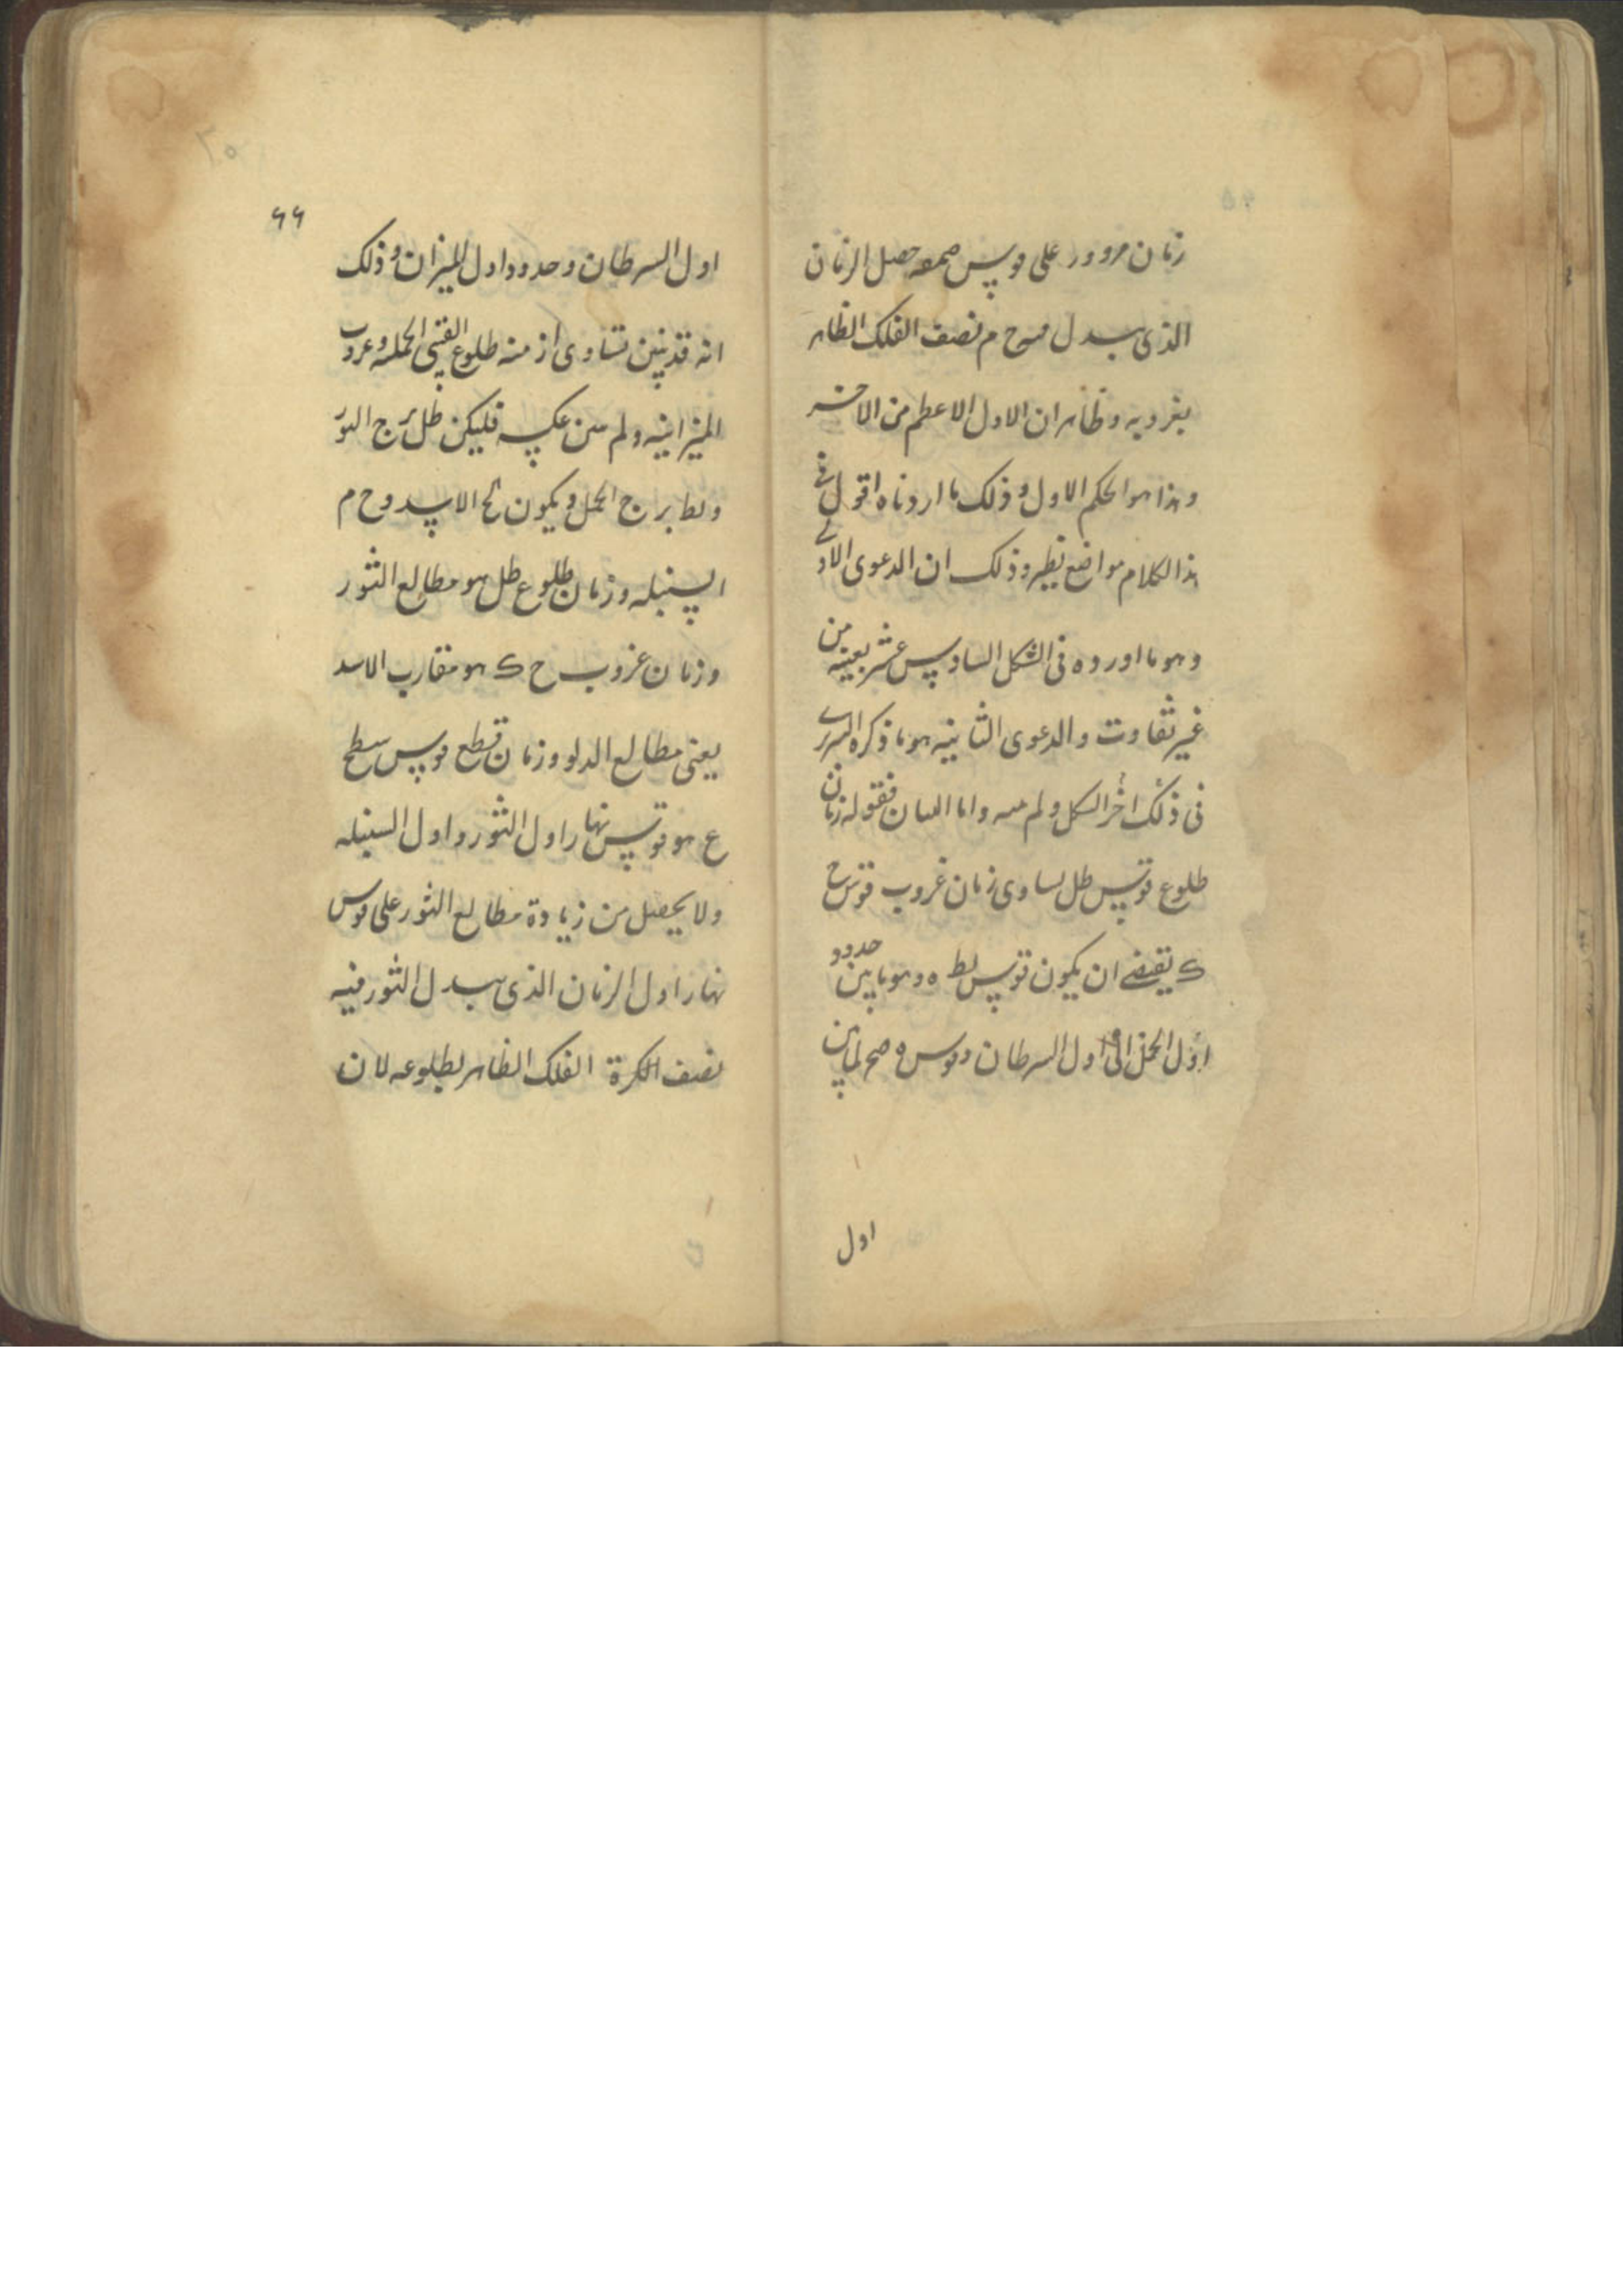 زمان مرور على قوس حصل الزمان
الذى يبدل م نصف الفلك الظاهر
بغروبه وظاهر ان الاول الاعظم من الاخر
وهذا هو الحكم الاول وذلك ما اردناه اقول فى
هذا الكلام مواضع نظر وذلك ان الدعوى الاولى
وهو ما اورده فى الشكل السادس عشر بعينه من
غير تفاوت والدعوى الثانيه هو ما ذكره
فى ذلك اخر الشكل ولم واما البيان فقوله زمان
طلوع قوس طل يساوى زمان غروب قوس ح
ك يقتضى ان يكون قوس لط ه وهو ما بين حدود
اول الحمل الى اول السرطان وقوس ه لما بين
اول
٦٦
اول السرطان وحدود اول الميزان وذلك
انه قد تبين تساوى ازمنه طلوع القسى الحمليه وغروب
الميزانيه ولم يبين عكسه فليكن طل برج الثور
ولط برج الحمل ويكون الاسد وح م
السنبله وزمان طلوع طل هو مطالع الثور
وزمان غروب ح ك هو مقارب الاسد
يعنى مطالع الدلو وزمان قطع قوس
ع هو قوس نهار اول الثور واول السنبله
ولا يحصل من زيادة مطالع الثور على قوس
نهار اول الزمان الذى يبدل الثور فيه
نصف الكرة الفلك الظاهر بطلوعه لان